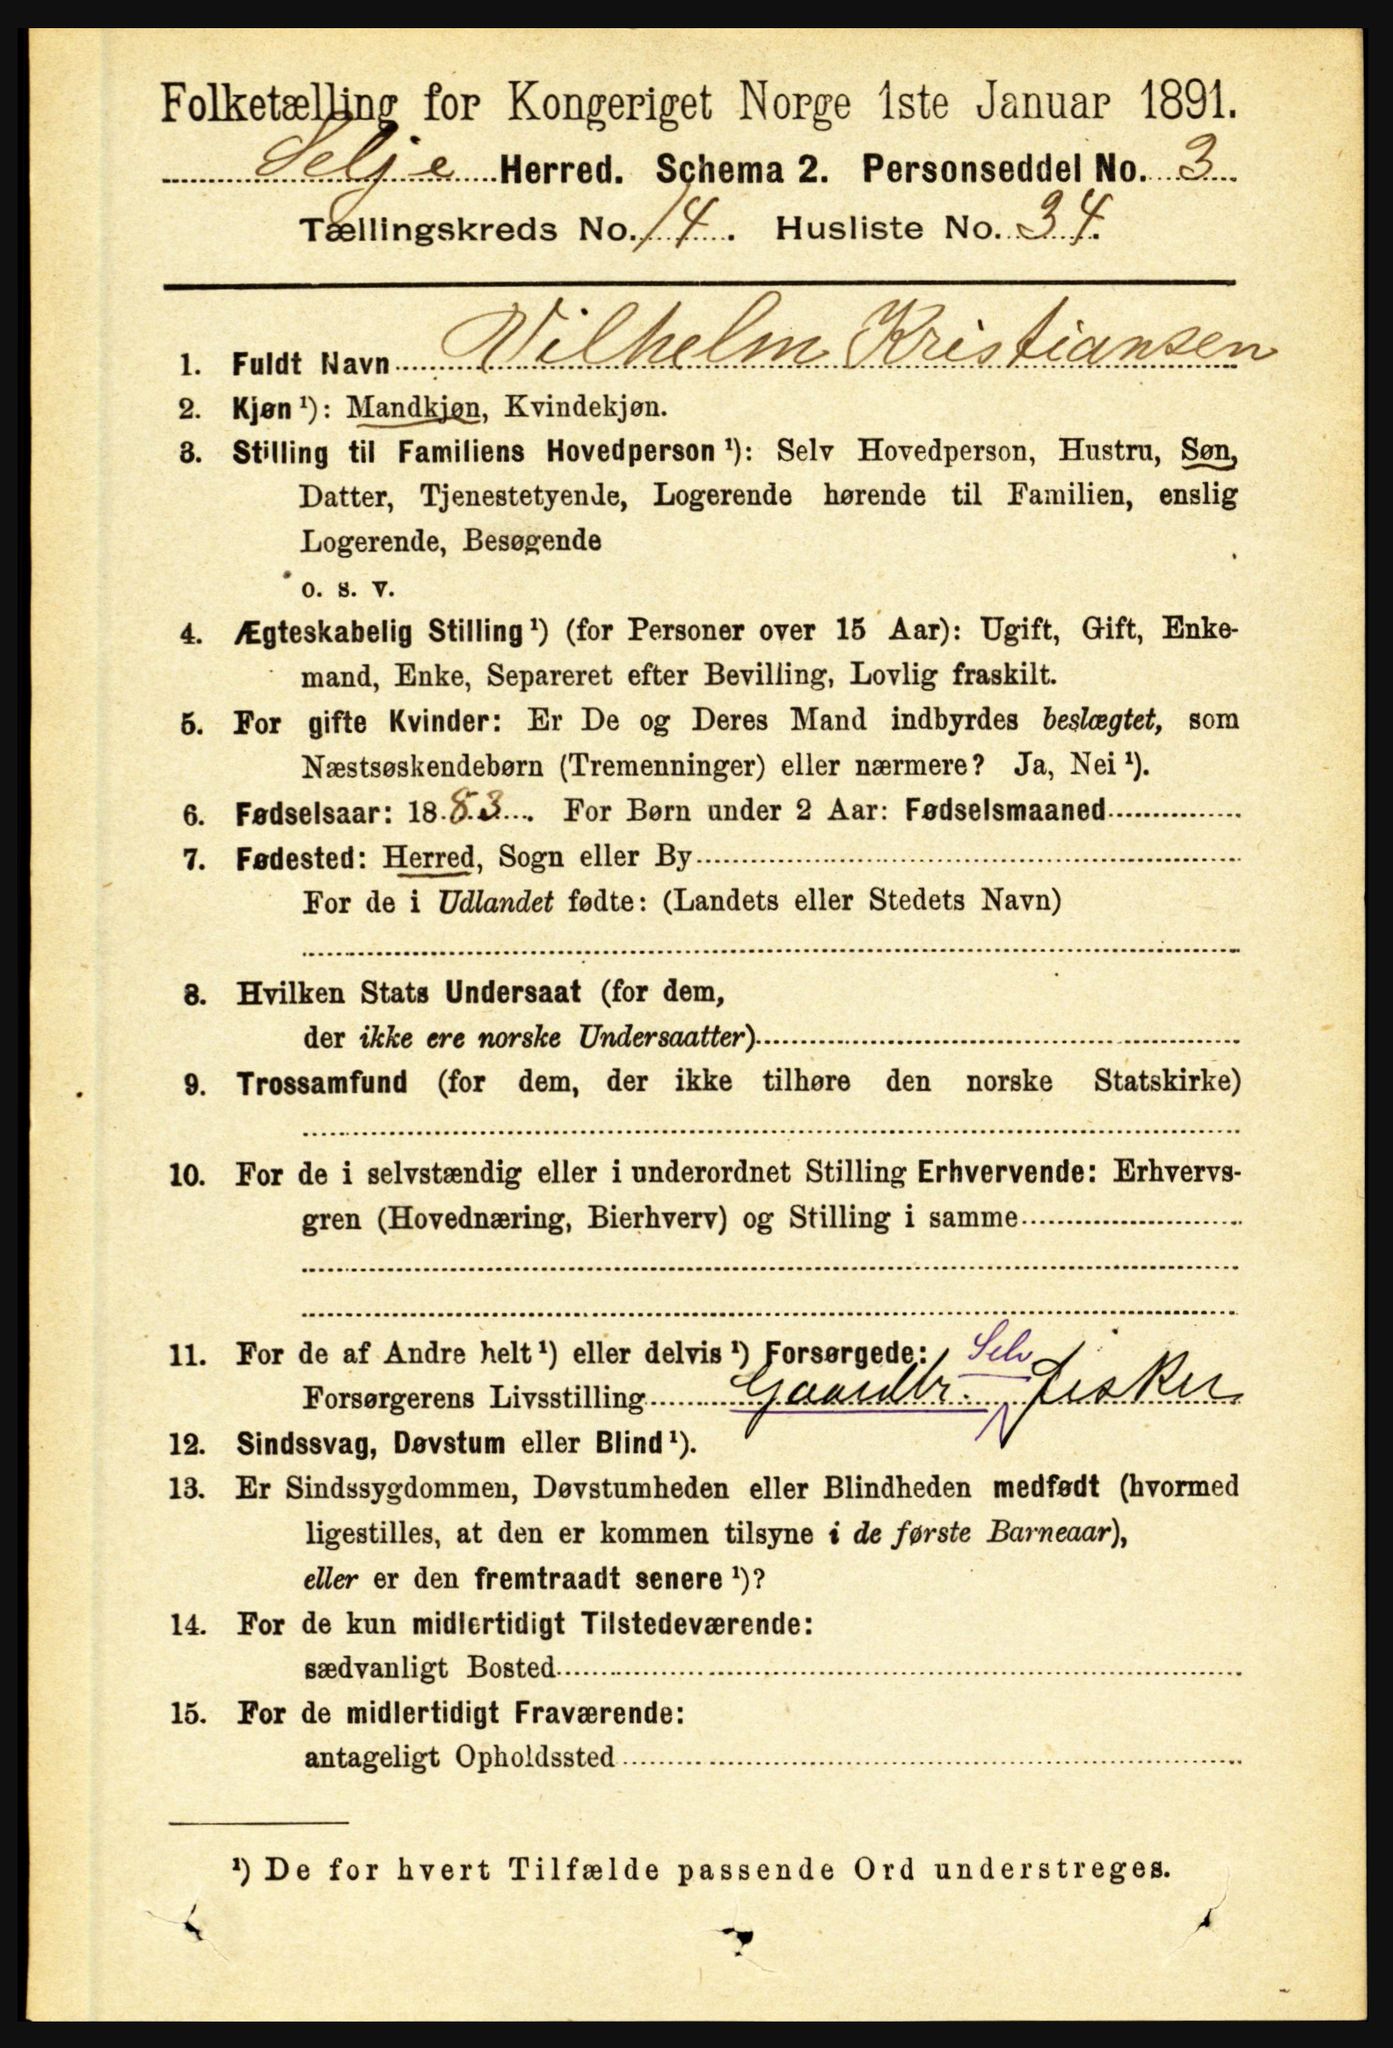 Folketælling for Kongeriget Norge 1ste Januar 1891.
Selje Herred. Schema 2. Personseddel No. 3
Tællingskreds No. 14. Husliste No. 34.
1. Fuldt Navn Vilhelm Kristiansen
2. Kjøn ¹): Mandkjøn, Kvindekjøn.
3. Stilling til Familiens Hovedperson ¹): Selv Hovedperson, Hustru, Søn,
Datter, Tjenestetyende, Logerende hørende til Familien, enslig
Logerende, Besøgende
o. s. v.
4. Ægteskabelig Stilling ¹) (for Personer over 15 Aar): Ugift, Gift, Enke-
mand, Enke, Separeret efter Bevilling, Lovlig fraskilt.
5. For gifte Kvinder: Er De og Deres Mand indbyrdes beslægtet, som
Næstsøskendebørn (Tremenninger) eller nærmere? Ja, Nei ¹).
6. Fødselsaar: 1883. For Børn under 2 Aar: Fødselsmaaned
7. Fødested: Herred, Sogn eller By
For de i Udlandet fødte: (Landets eller Stedets Navn)
8. Hvilken Stats Undersaat (for dem,
der ikke ere norske Undersaatter)
9. Trossamfund (for dem, der ikke tilhøre den norske Statskirke)
10. For de i selvstændig eller i underordnet Stilling Erhvervende: Erhvervs-
gren (Hovednæring, Bierhverv) og Stilling i samme
11. For de af Andre helt ¹) eller delvis ¹) Forsørgede: Selv
Forsørgerens Livsstilling Gaardbr. Fisker
12. Sindssvag, Døvstum eller Blind ¹).
13. Er Sindssygdommen, Døvstumheden eller Blindheden medfødt (hvormed
ligestilles, at den er kommen tilsyne i de første Barneaar),
eller er den fremtraadt senere ¹)?
14. For de kun midlertidigt Tilstedeværende:
sædvanligt Bosted
15. For de midlertidigt Fraværende:
antageligt Opholdssted
¹) De for hvert Tilfælde passende Ord understreges.